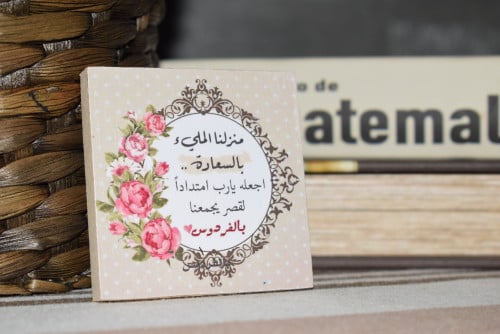 منزلنا المليء
بالسعادة ..
اجعله يارب امتداداً
لقصر يجمعنا
بالفردوس
o de
atemal